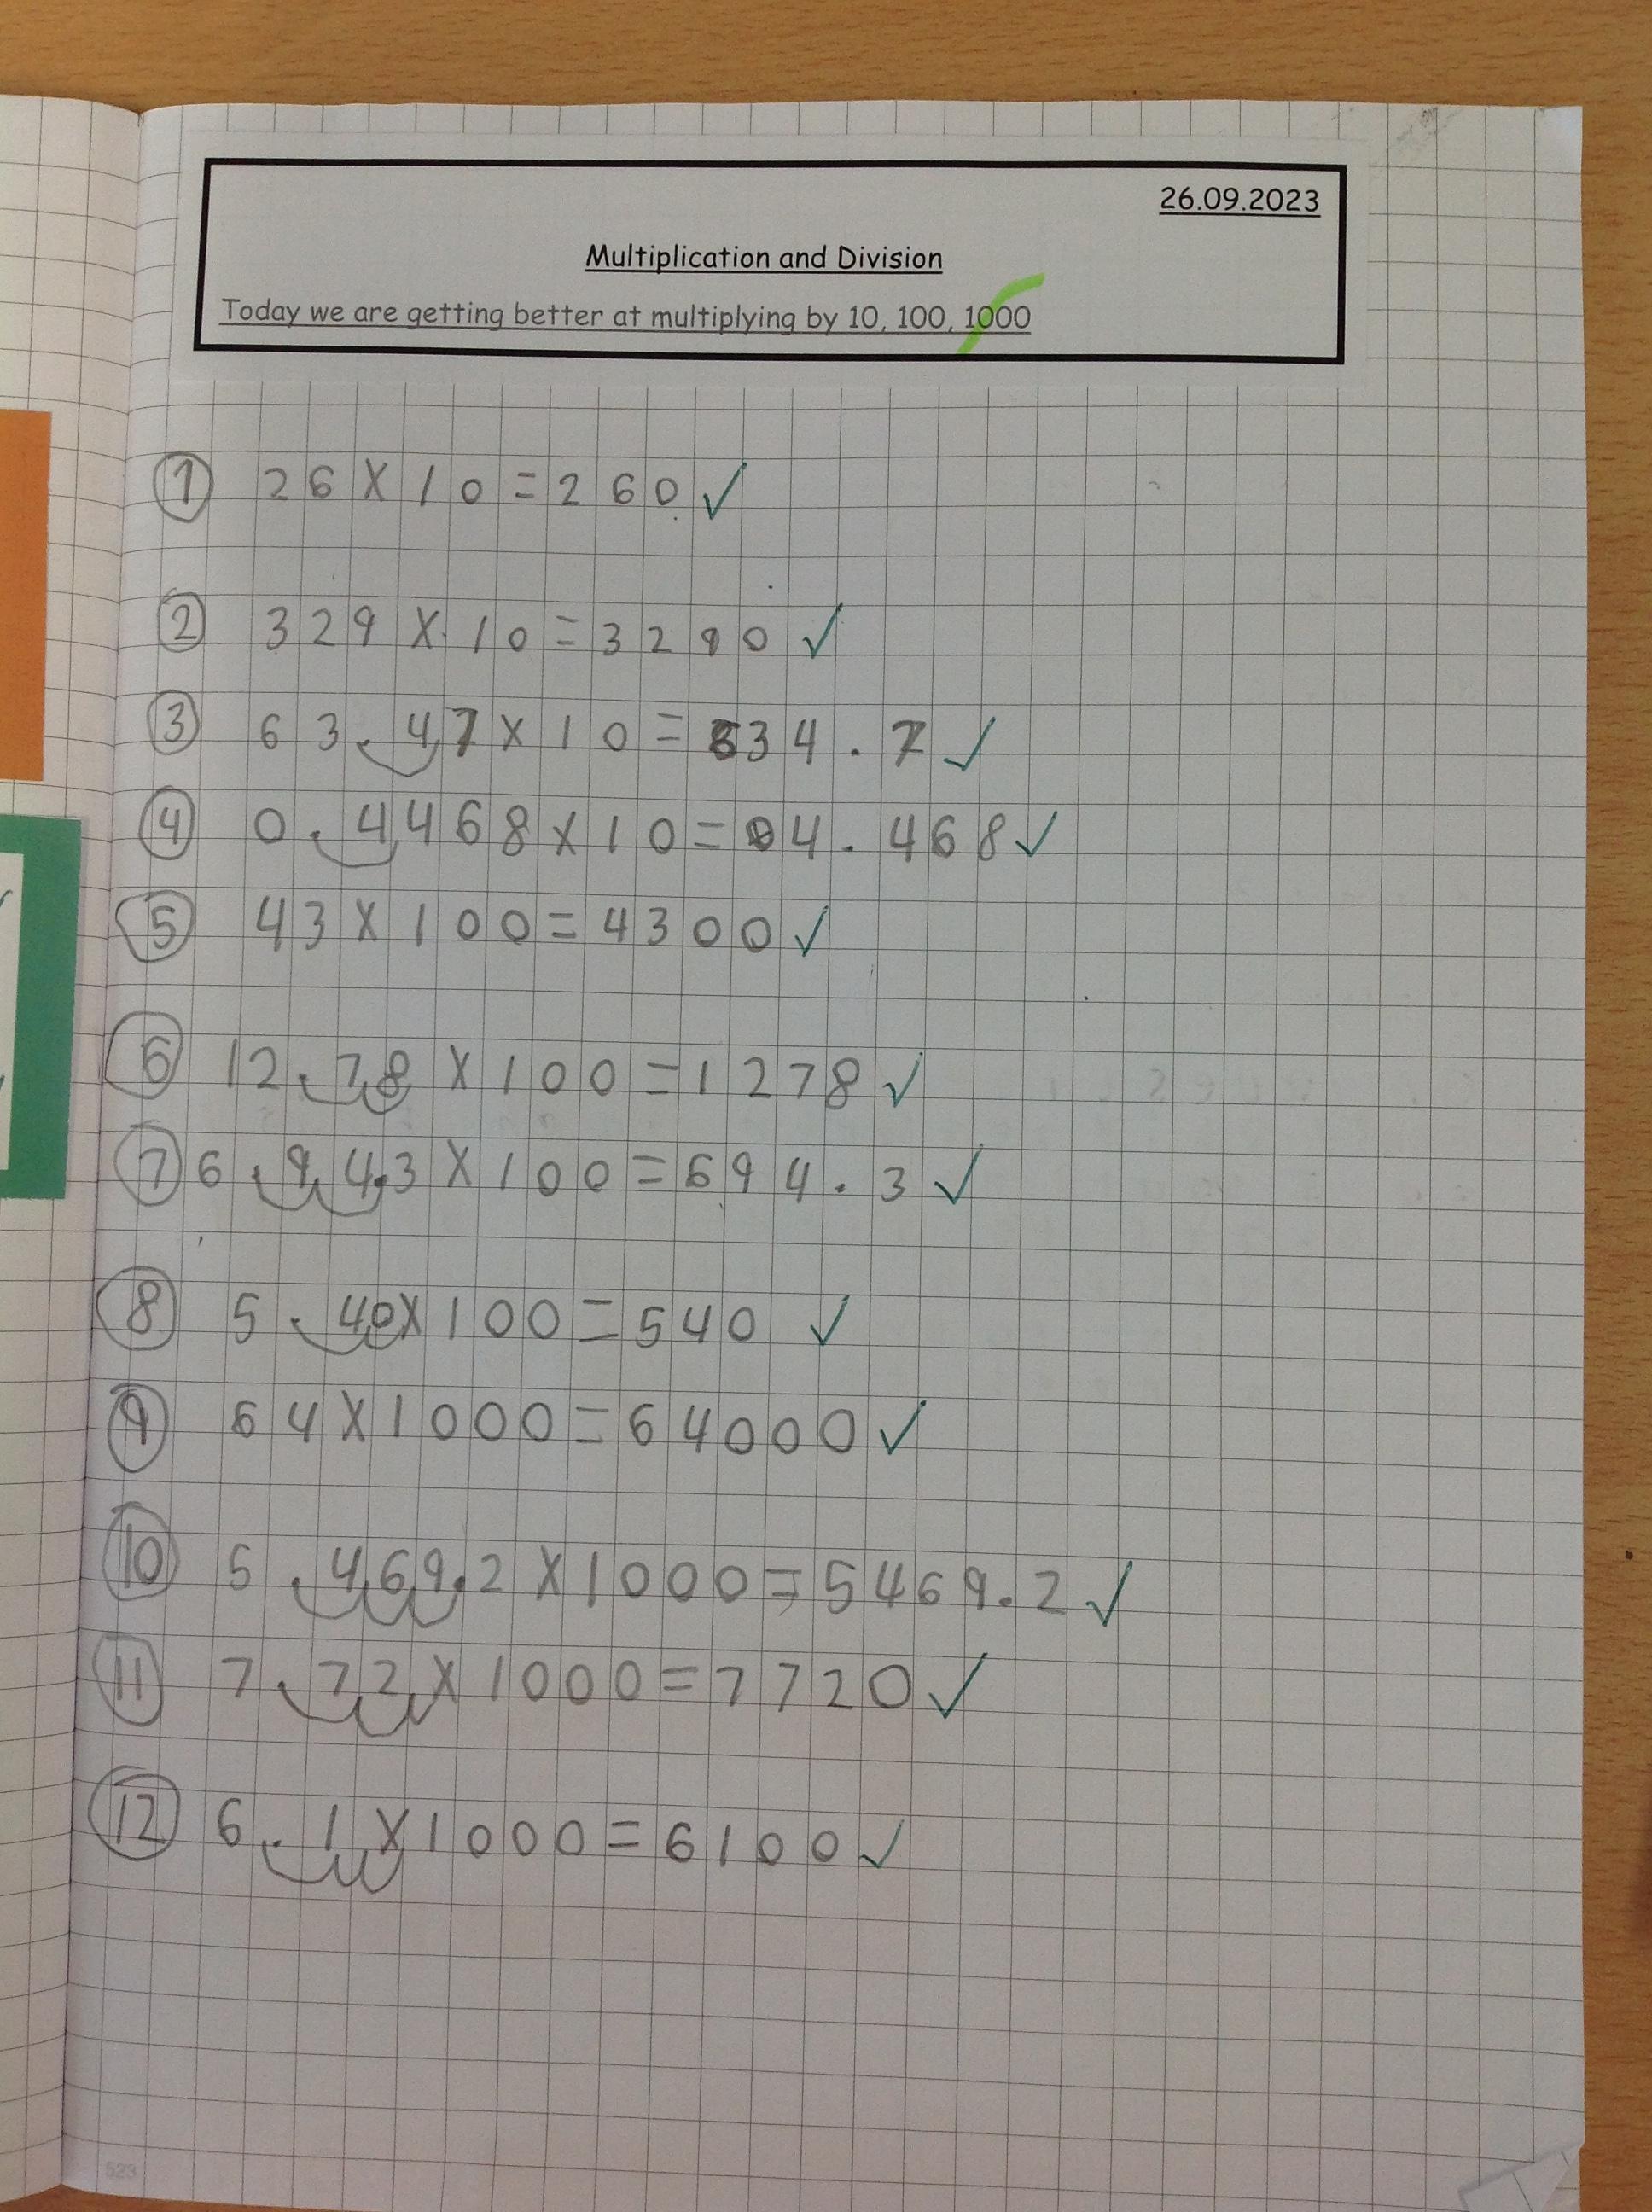 26.09.2023
Multiplication and Division
Today we are getting better at multiplying by 10, 100, 1000
1 26 X 10 = 260
2 329 X 10 = 3290
3 63.47 X 10 = 634.7
4 0.4468 X 10 = 04.468
5 43 X 100 = 4300
6 12.78 X 100 = 1278
7 6.943 X 100 = 694.3
8 5.40 X 100 = 540
9 64 X 1000 = 64000
10 5.4692 X 1000 = 5469.2
11 7.72 X 1000 = 7720
12 6.1 X 1000 = 6100
523